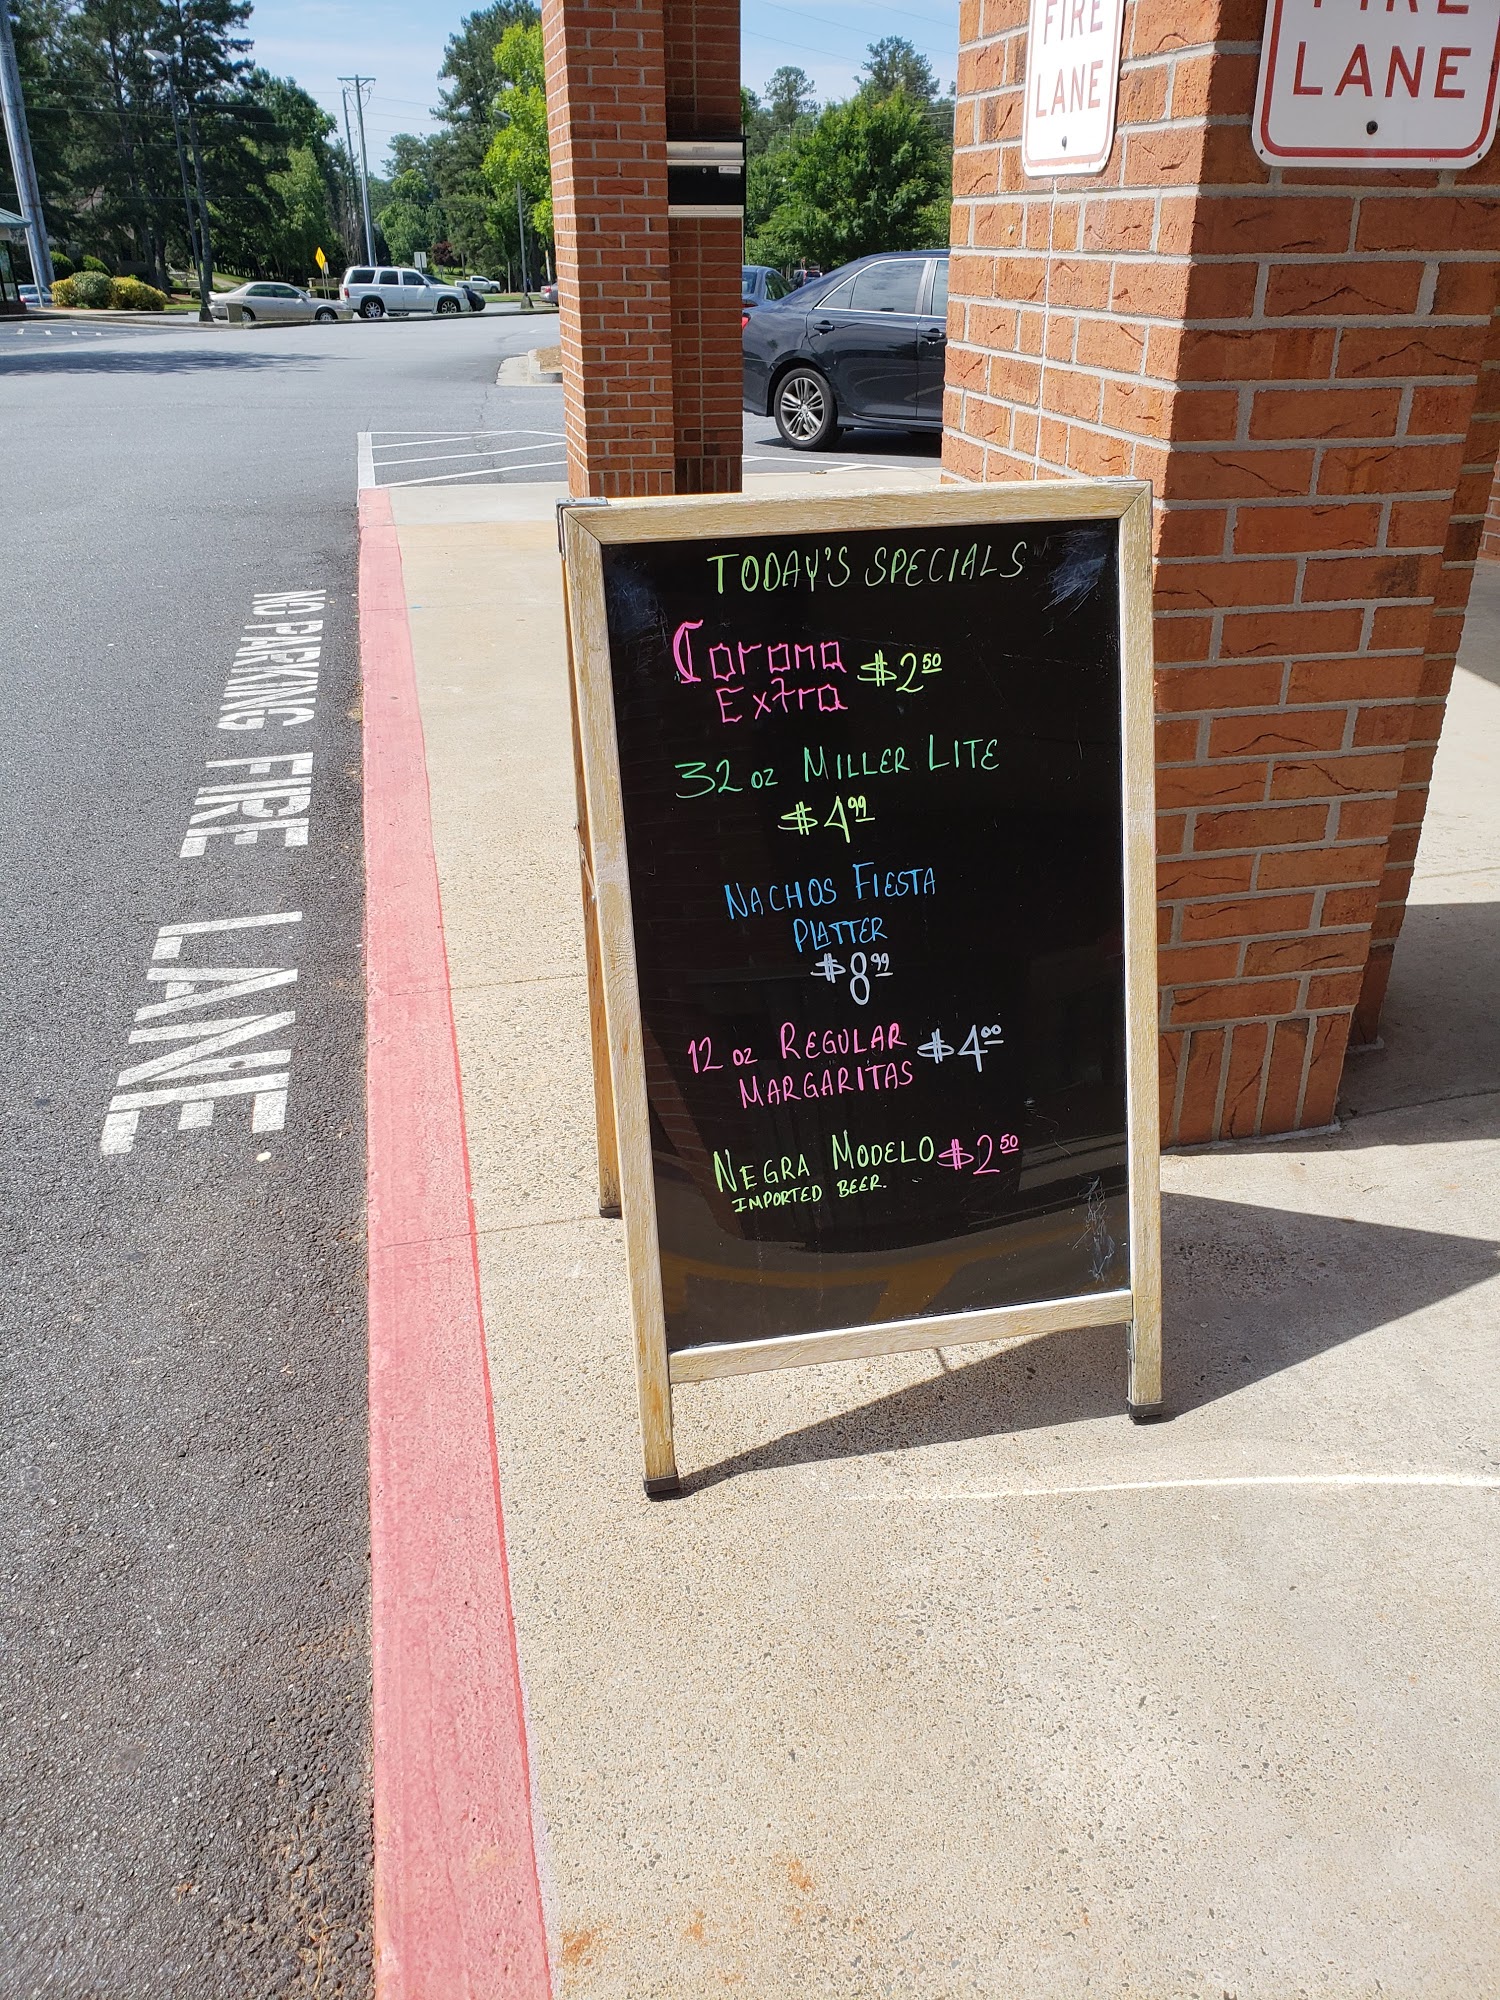 FIRE
LANE
FIRE
LANE
TODAY'S SPECIALS
Corona $2.50
Extra
32 oz MILLER LITE
$4.99
NACHOS FIESTA
PLATTER
$8.99
12 oz REGULAR $4.00
MARGARITAS
NEGRA MODELO $2.50
IMPORTED BEER.
NO PARKING FIRE LANE